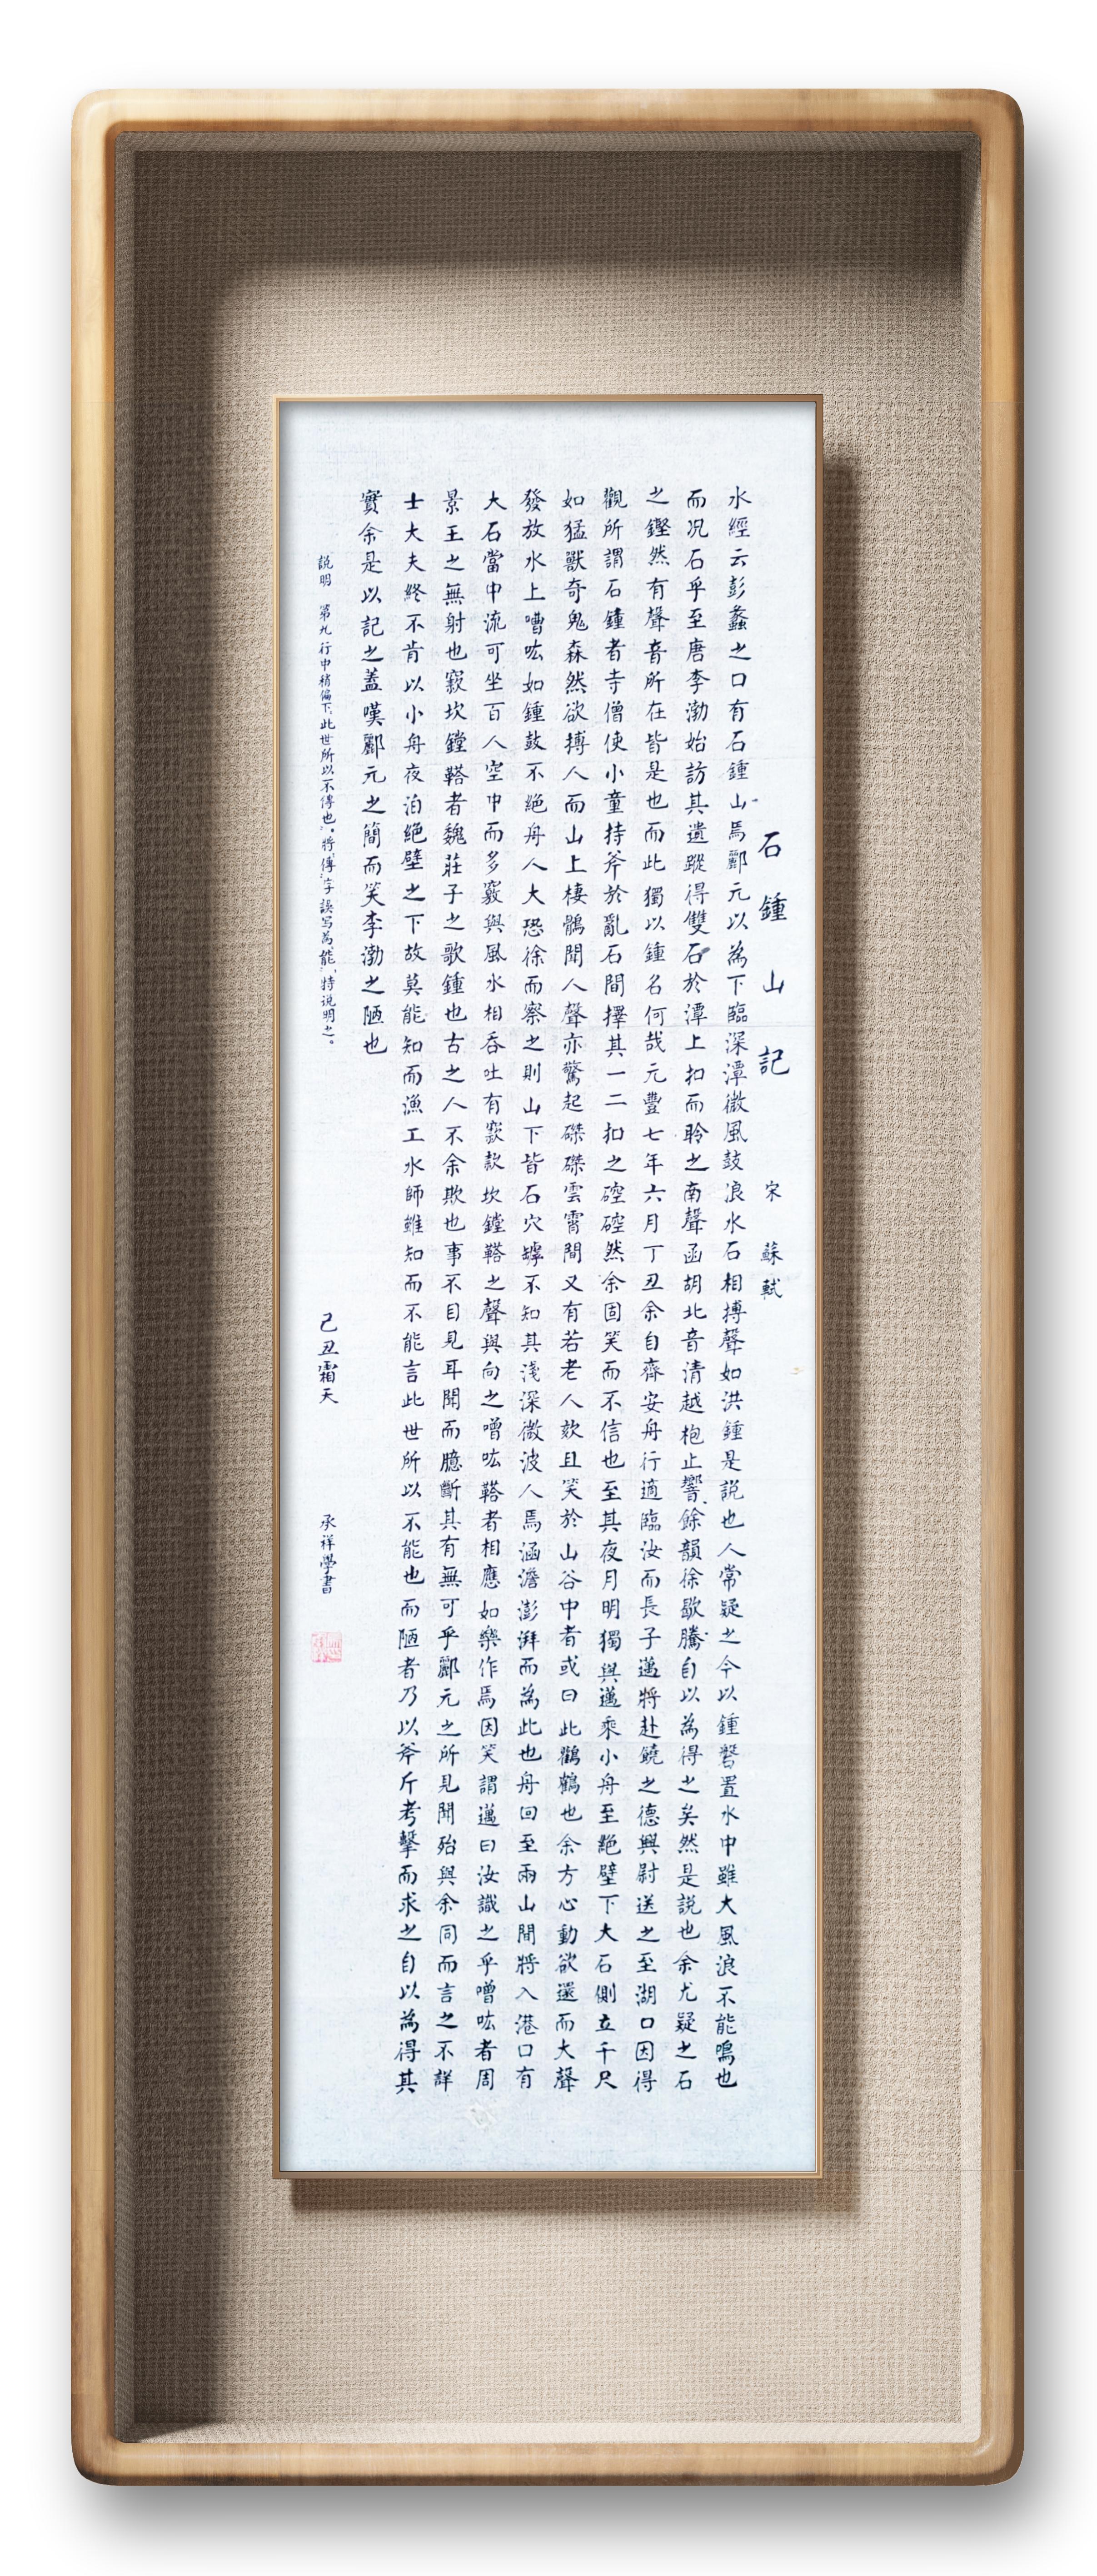 石鍾山記 宋 蘇軾
水經云彭蠡之口有石鍾山焉酈元以為下臨深潭微風鼓浪水石相搏聲如洪鍾是説也人常疑之今以鍾磬置水中雖大風浪不能鳴也
而况石乎至唐李渤始訪其遺蹤得雙石於潭上扣而聆之南聲函胡北音清越枹止響餘韻徐歇騰自以為得之矣然是説也余尤疑之石
之鏗然有聲音所在皆是也而此獨以鍾名何哉元豐七年六月丁丑余自齊安舟行適臨汝而長子邁將赴饒之德興尉送之至湖口因得
觀所謂石鍾者寺僧使小童持斧於亂石間擇其一二扣之硿硿然余固笑而不信也至其夜月明獨與邁乘小舟至絶壁下大石側立千尺
如猛獸奇鬼森然欲搏人而山上棲鶻聞人聲亦驚起磔磔雲霄間又有若老人欬且笑於山谷中者或曰此鸛鶴也余方心動欲還而大聲
發放水上噌吰如鍾鼓不絶舟人大恐徐而察之則山下皆石穴罅不知其淺深微波入焉涵澹澎湃而為此也舟回至兩山間將入港口有
大石當中流可坐百人空中而多竅與風水相吞吐有窾款坎鏜鞳之聲與向之噌吰鞳者相應如樂作焉因笑謂邁曰汝識之乎噌吰者周
景王之無射也窾坎鏜鞳者魏莊子之歌鍾也古之人不余欺也事不目見耳聞而臆斷其有無可乎酈元之所見聞殆與余同而言之不詳
士大夫終不肯以小舟夜泊絶壁之下故莫能知而漁工水師雖知而不能言此世所以不能也而陋者乃以斧斤考擊而求之自以為得其
實余是以記之蓋嘆酈元之簡而笑李渤之陋也
説明 第九行中稍偏下,此世所以不傳也”。將“傳”字誤写為“能”,特说明之。
己丑霜天 承祥學書